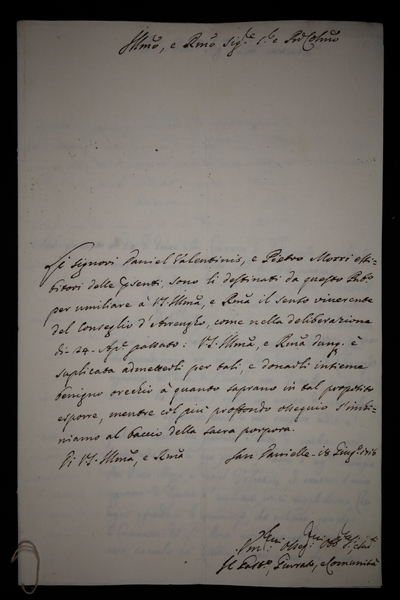 Illmo, e Rmo Sig.re S.re e Pron Colmo
Li Signori Daniel Valentinis, e Pietro Morri esi-
bitori delle psenti, sono li destinati da questo Pub.
per umiliare à VS. Illma, e Rma il sento vinerente
del Conseglio d'Arengho, come nella deliberazione
di 24. Apr. passato: VS. Illma, e Rma dunq. è
suplicata admetterli per tali, e donarli insieme
benigno orecchio à quando saprano in tal proposito
esporre, mentre col più proffondo ossequio s'inchi-
niamo al baccio della sacra porpora.
Di VS. Illma, e Rma San Daniele - 18 Giug.
Il Giurati, e Comunità